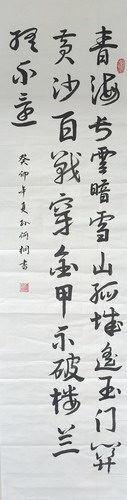 青海长雲暗雪山孤城遥玉门關
黄沙百戰穿金甲不破楼兰
终不還
癸卯年夏孙何桐书